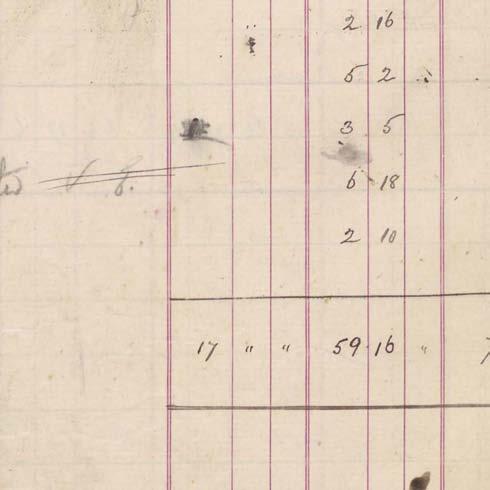 2 16
5 2
3 5
6 18
2 10
17 " " 59 16 "